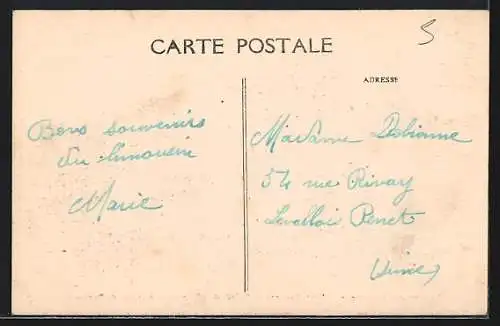 CARTE POSTALE
5
ADRESSE
Bons souvenirs
du limousin
Marie
Madame
54 rue Rivay
Levallois Perret
Seine